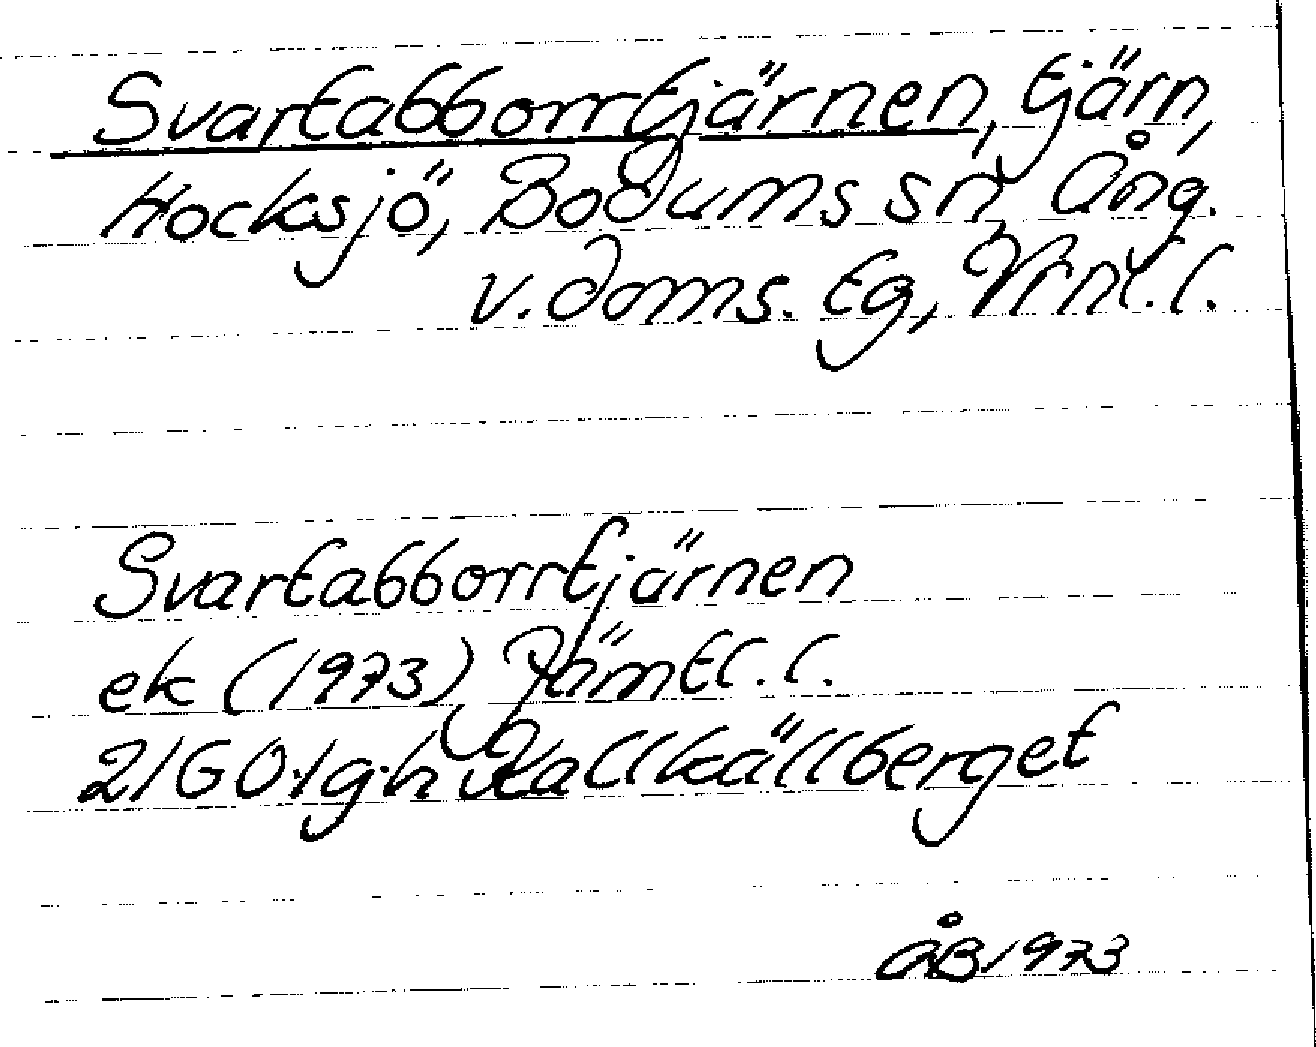 Svartabborrtjärnen, tjärn,
Hocksjö, Bodums sn, Ång.
v. doms. tg, Vrnl. l.
Svartabborrtjärnen
ek (1973) Jämtl. l.
21G 0-1 g-h Kallkällberget
ÅB 1973